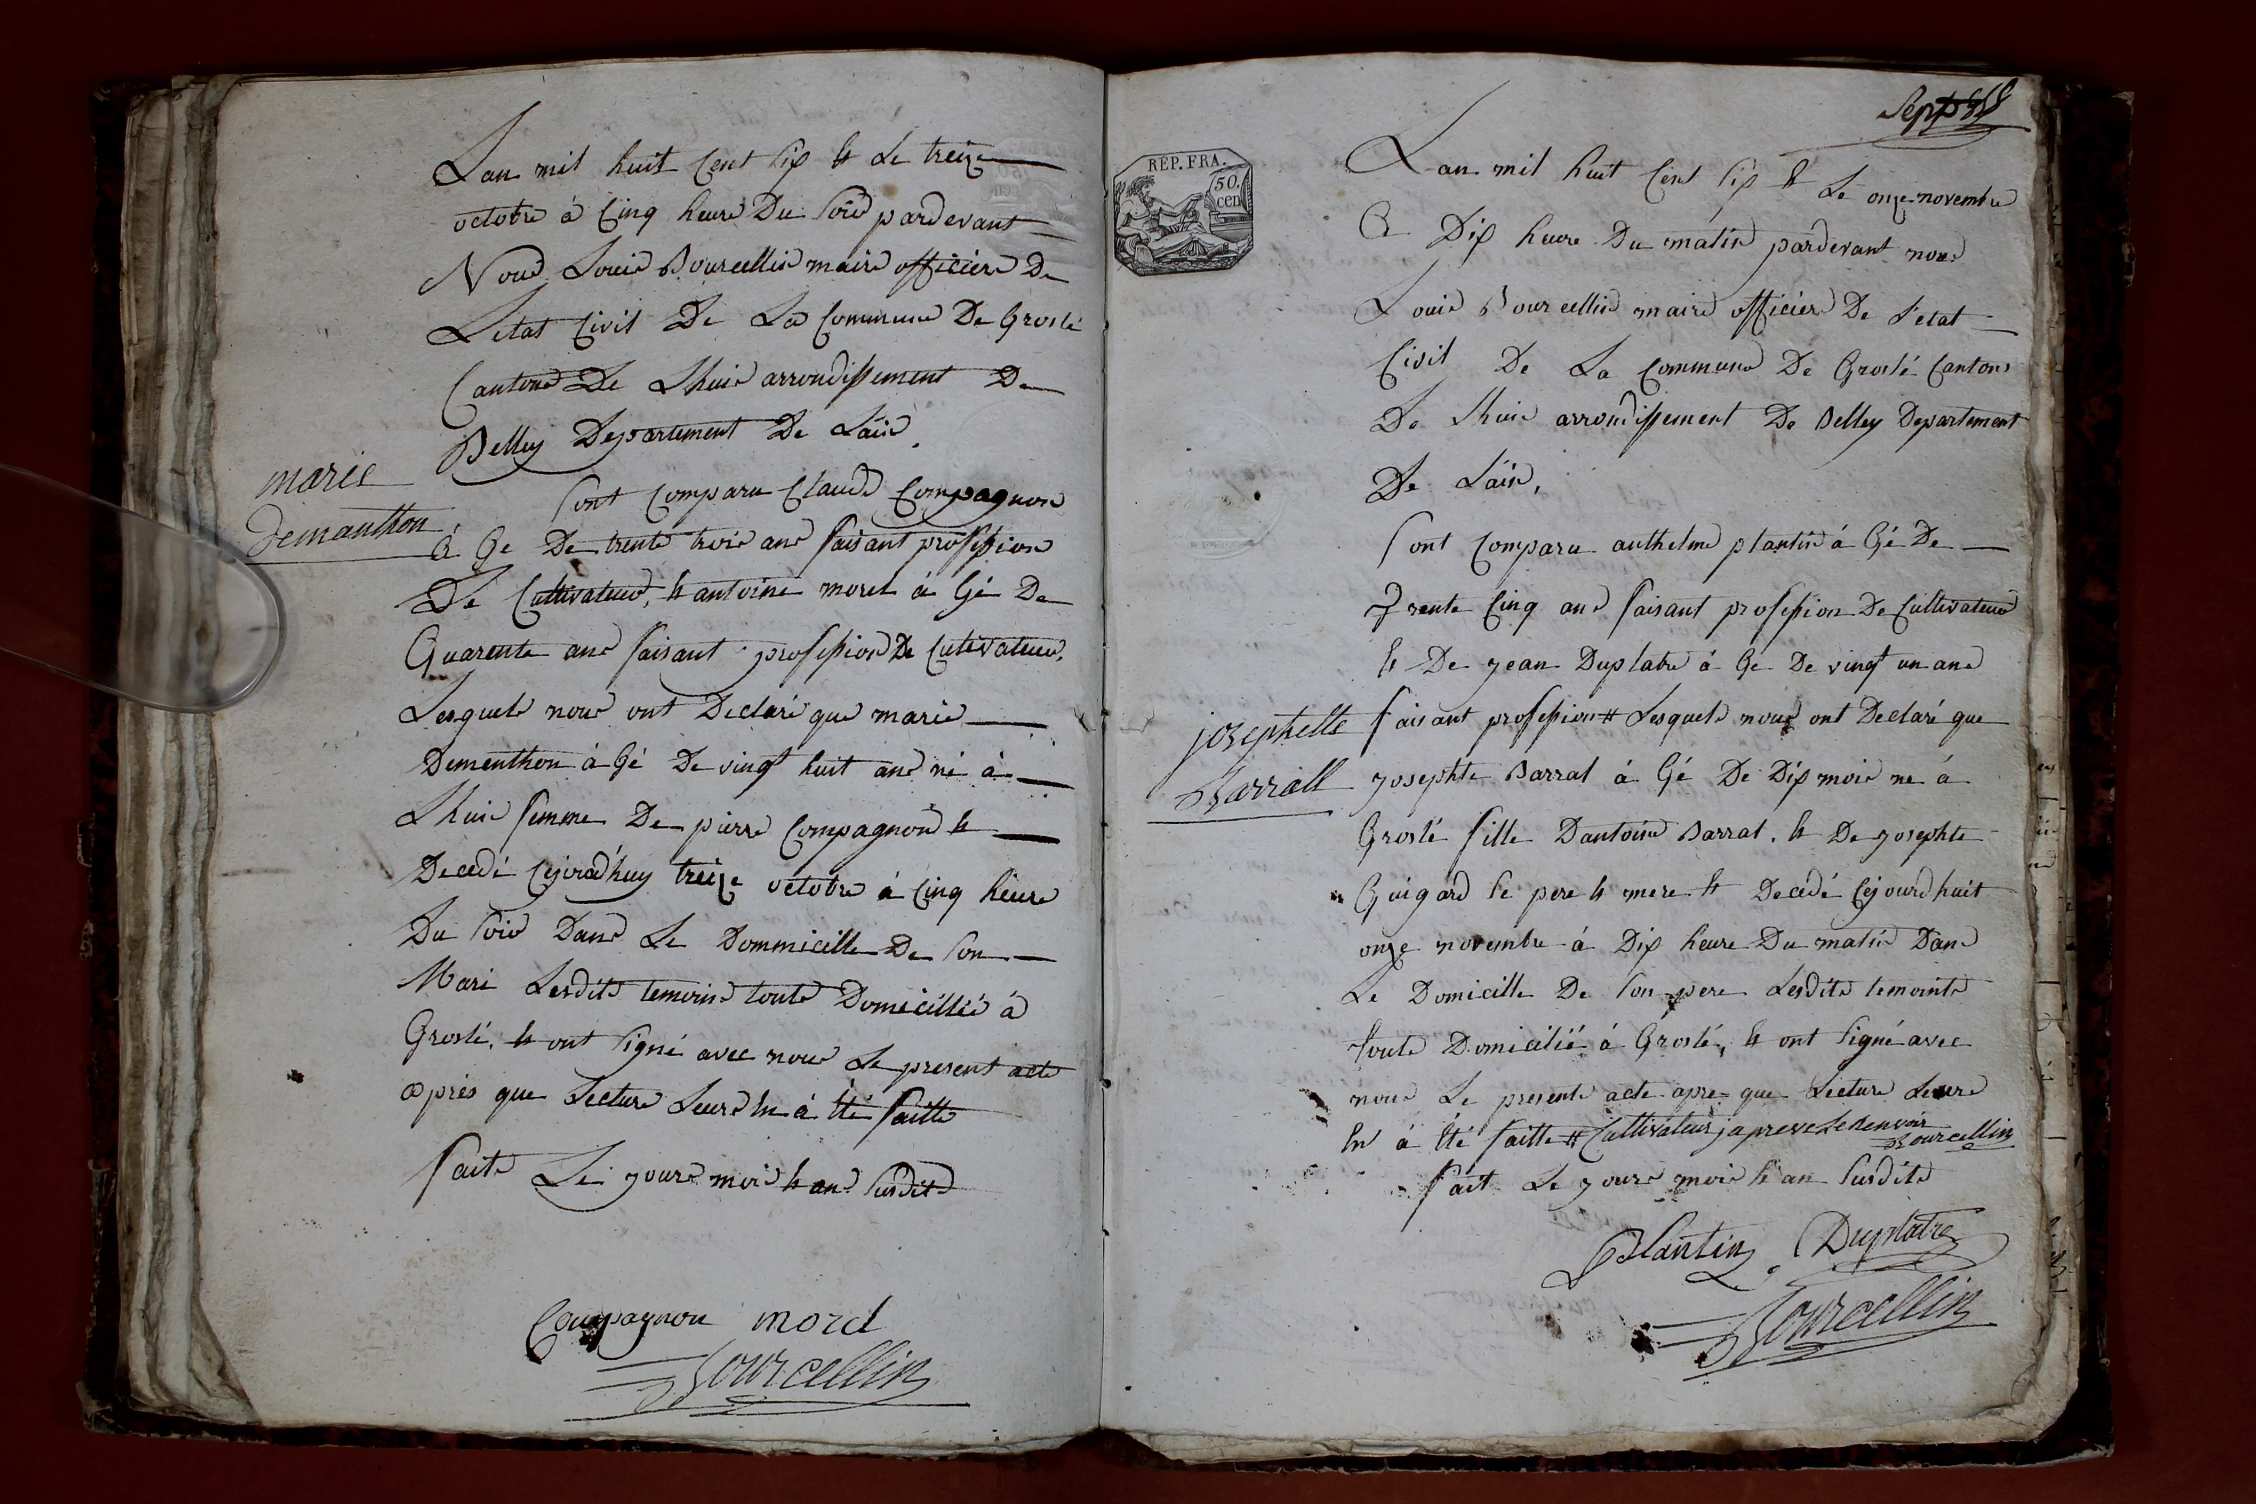 Lan mil huit Cent six & Le treize
octobre à Cinq heure Du soir pardevant
Nous Louis Bourcellin maire officiere De
Letat Civil De La Commune De Groslé
Cantons De Lhuis arrondissement De
Belley Departement De Lain
marie
Demanthon
Sont Comparu Claude Compagnon
à Ge De trente trois ans faisant profession
De Cultivateur, & antoine morel à Gé De
Quarente ans faisant profession De Cutivateur,
Lesquels nous ont Declaré que marie
Dementhon à Gé De vingt huit ans né à
Lhuis femme De pierre Compagnon &
Decedé Cejourd'huy treize octobre à Cinq heure
Du soir Dans Le Dommicille De son
Mari Lesdits temoins touts Domicillié à
Groslé, & ont signé avec nous Le present acte
après que Lecture Leurs en à été faitte
faits Le jours mois & ans susdits
Compagnon morel
Bourcellin
Sept
REP. FRA.
50.
cen
Lan mil huit Cent six & Le onze novembre
à Dix heure Du matin pardevant nous
Louis Bourcellin maire officiere De L'etat
Civil De La Commune De Groslé Cantons
De Lhuis arrondissement De Belley Departement
De Lain,
Sont Comparu anthelme plantin à Gé De
Trente Cinq ans faisant profession De Cultivateur
& De jean Duplatre à Ge De vingt un ans
josephette
Barrall
faisant profession # Lesquels nous ont Declaré que
josephte Barrat à Gé De Dix mois ne à
Groslé fille Dantoine Barrat, & De josephte
Guigard se pere & mere & Decédé Cejourdhuit
onze novembre à Dix heure Du matin Dans
Le Domicille De son pere Lesdits temoints
touts Domicilié à Groslé, & ont signé avec
nous Le presente acte apres que Lecture Leurs
en à été faitte # Cultivateur japreve Le Renvoir
Bourcellin
fait Le jours mois & an susdits
Plantin Duplatre
Bourcellin